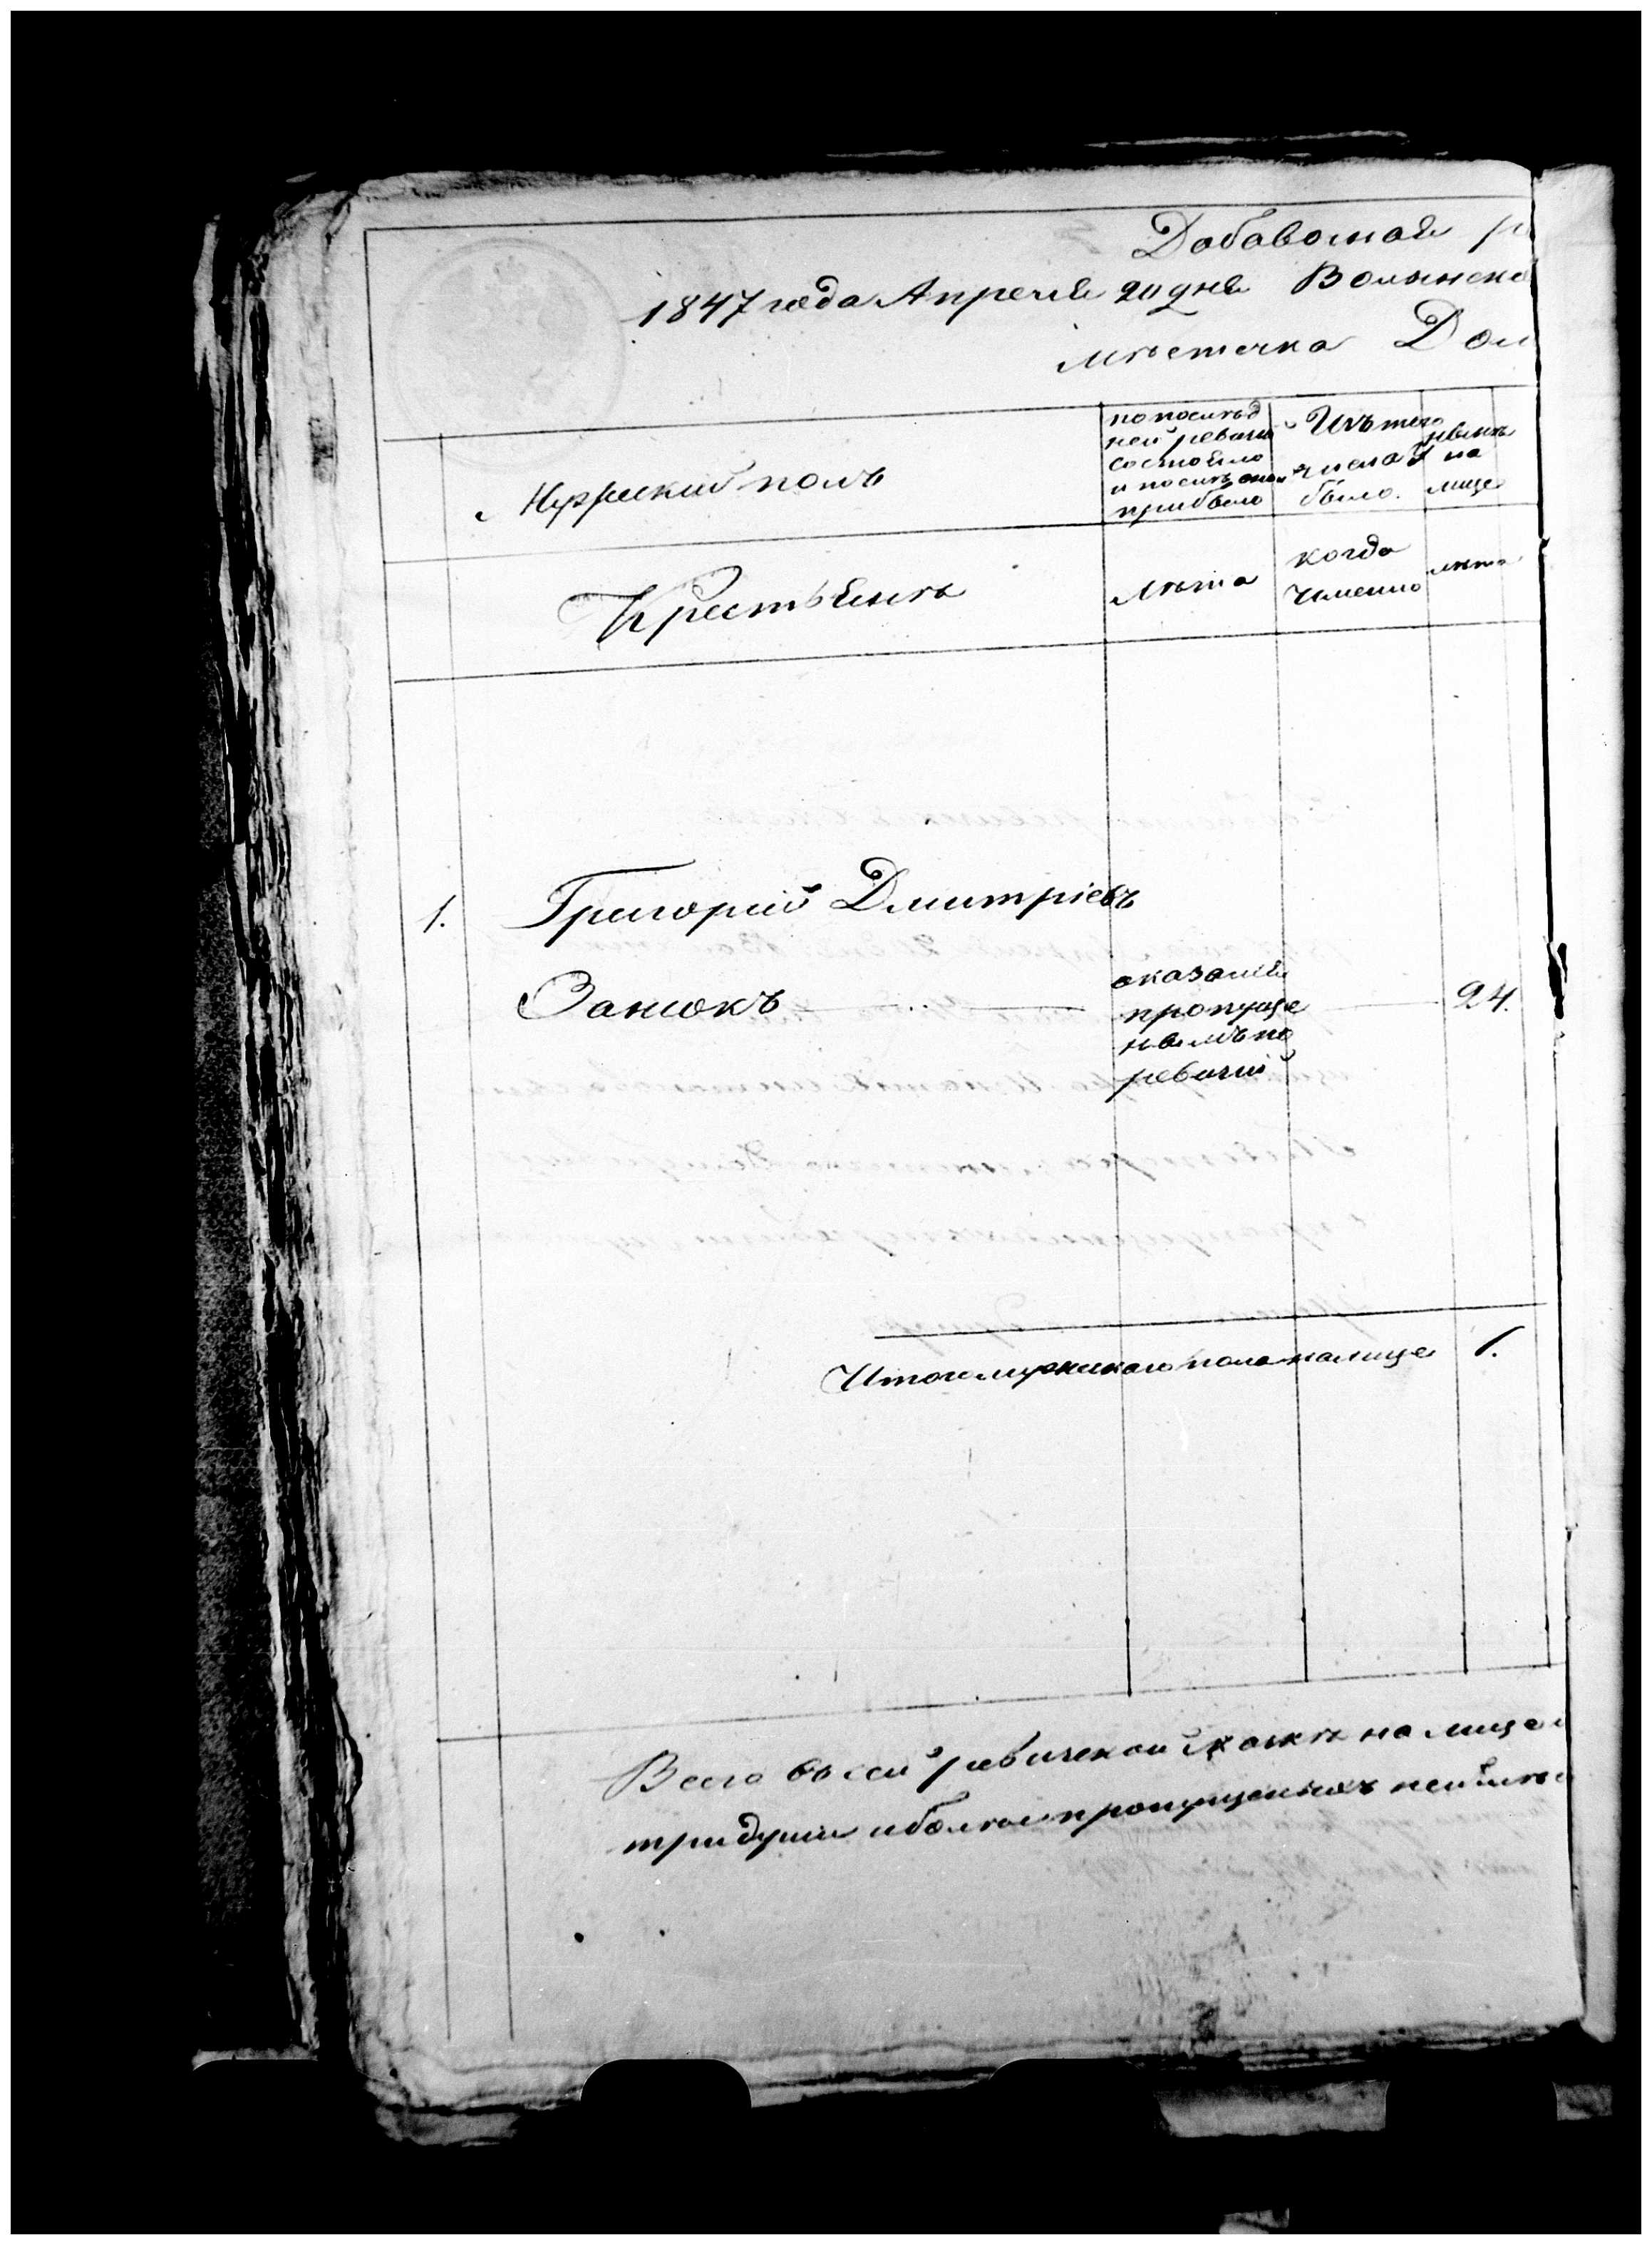 Добавочная р
1847 года Апреля 20 дня Волынско
мѣстечка Дом
Мужеский полъ
по послѣд
ней ревизіи
состояло
и послѣ оной
прибыло
Изъ того
числа
было.
нынѣ
на
лице
Крестьянъ
Лѣта
когда
именно
лѣта
1. Григорій Дмитріевъ
Занюкъ
оказался
пропуще
нымъ по
ревизіи
24.
Итого мужескаго пола налице 1.
Всего въ сей ревизской скаскѣ на лице
три души и болѣе пропущенныхъ неимѣю